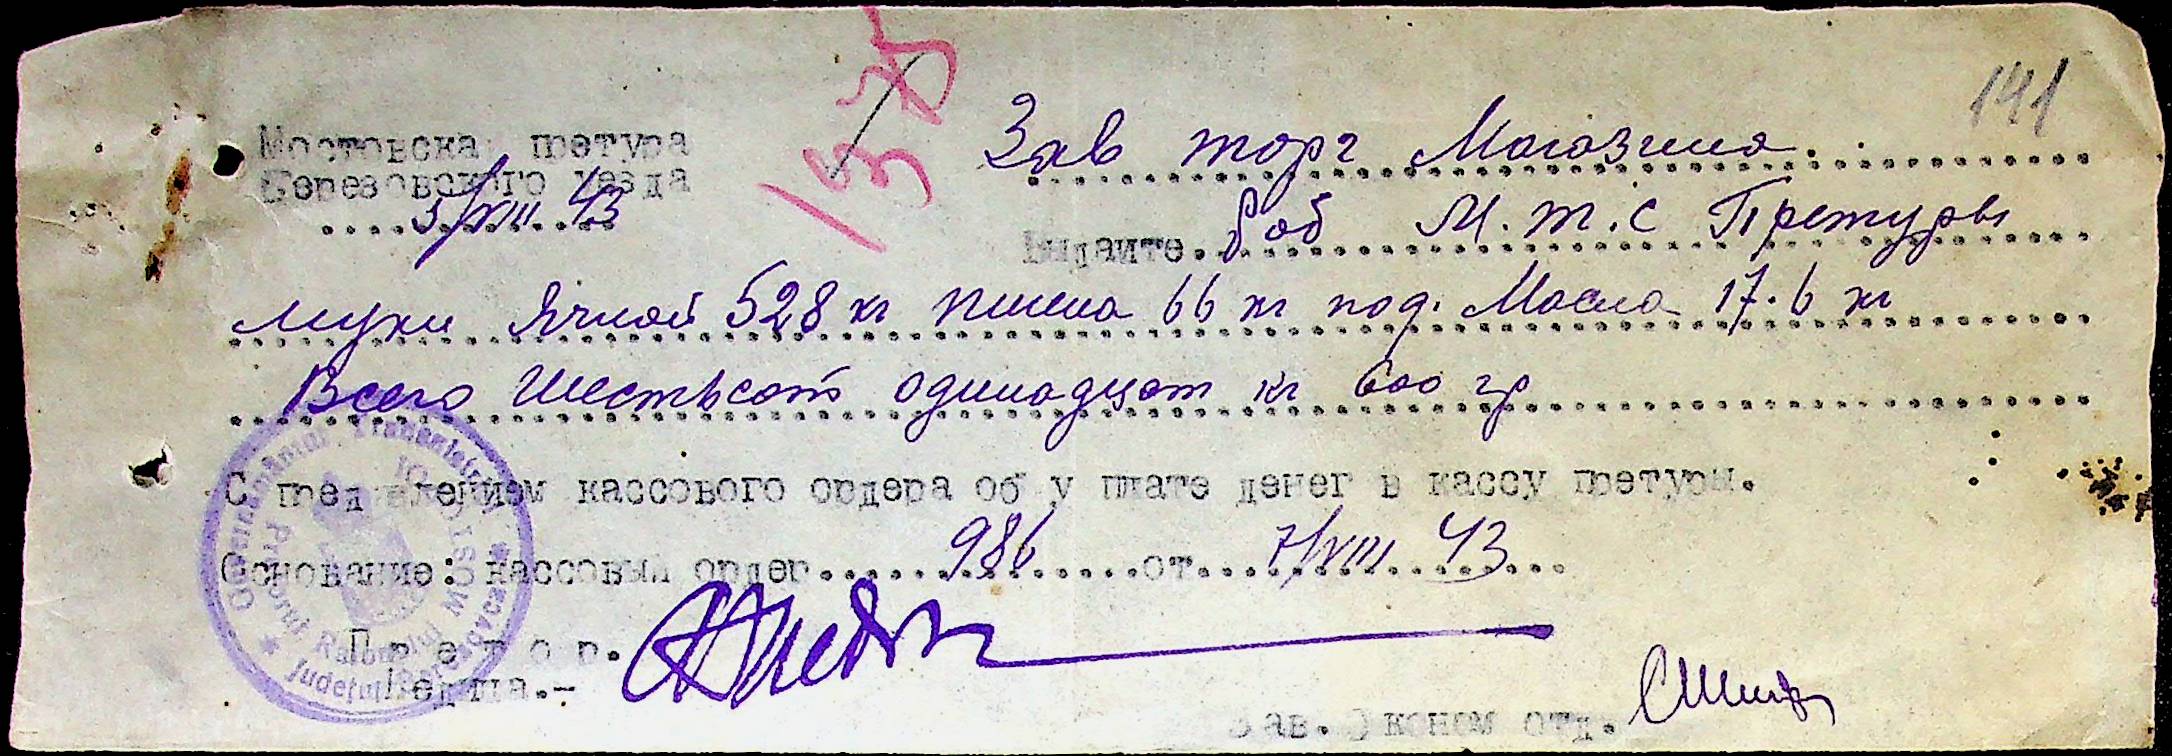 141
Мостовска претура
Березовского уезда
5/VIII 43
Зав торг Магазина
Выдайте раб М.Т.С Претуры
муки Ячной 528 кг пшена 66 кг под. Масла 17.6 кг
Всего Шестьсот одинадцат кг 600 гр
С пред влением кассового ордера об у плате денег в кассу претуры.
Основание: кассовый ордер 986 от 7/VIII 43
Претор.
Недица.-
Зав. Эконом отд.
Guvernământul Transnistriei
Pretorul Raionului MOSTOVOI
Județul Berezovca